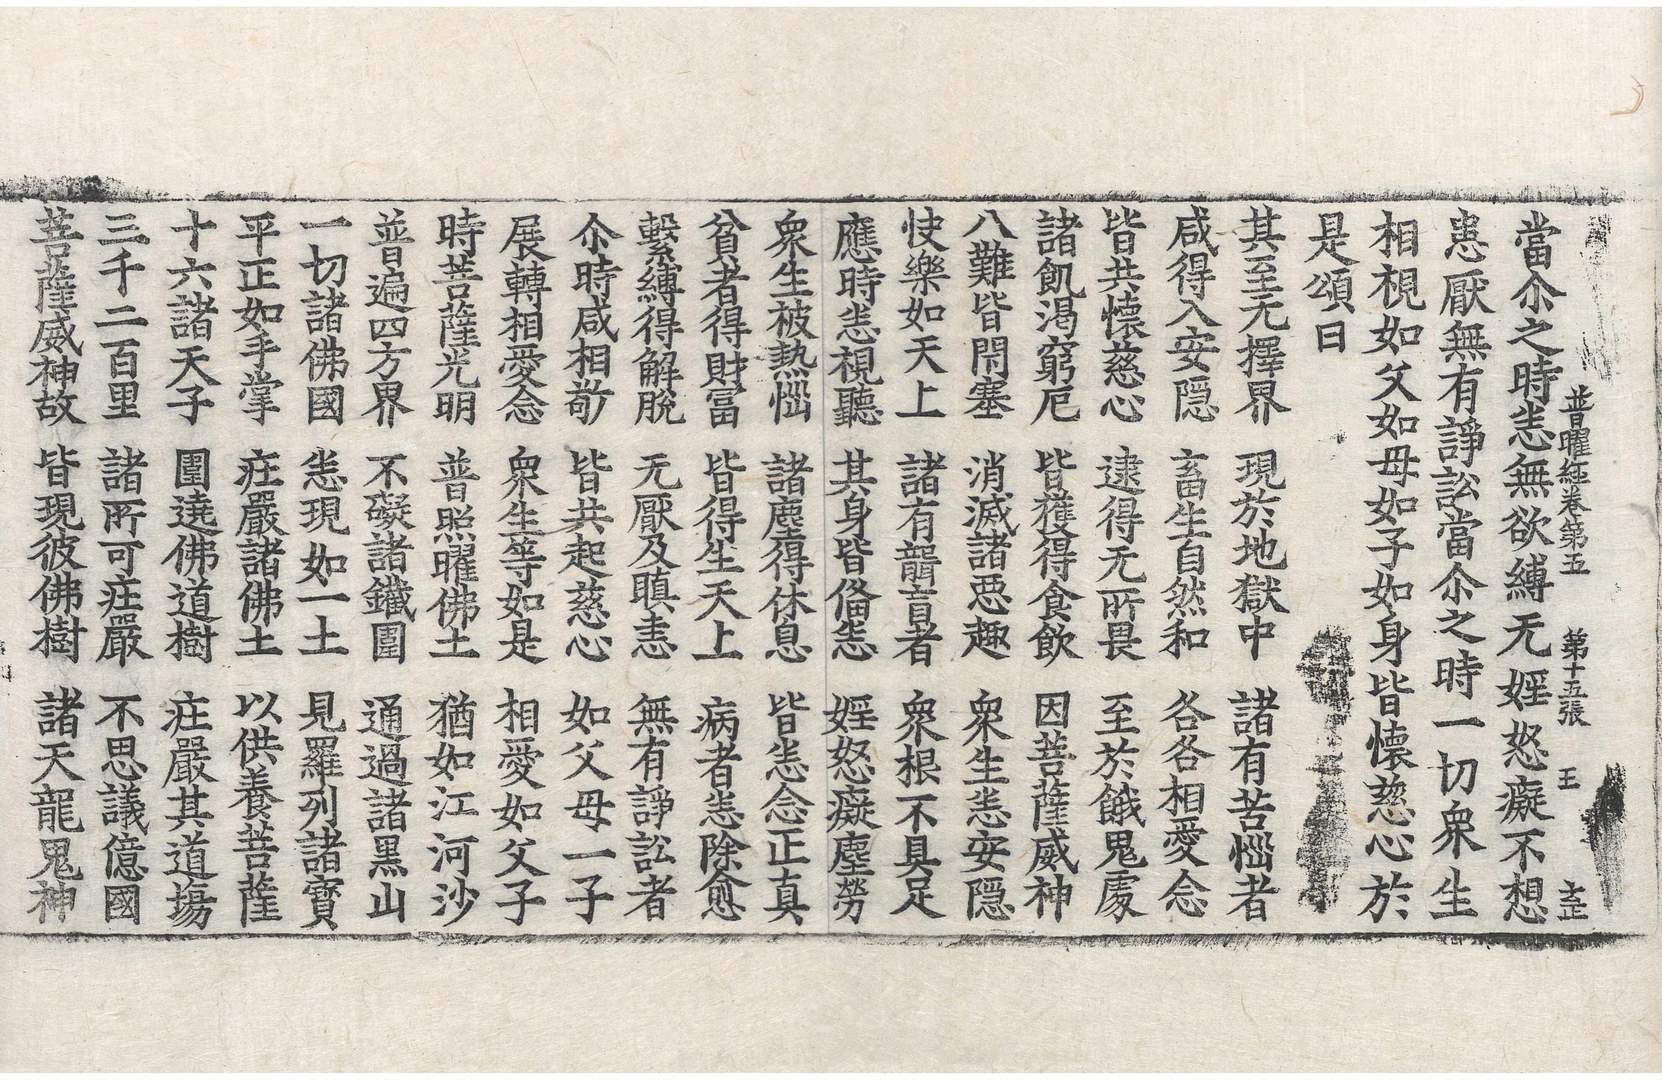 普曜經卷第五 第十五張 王
當尒之時恚無欲縛无婬怒癡不想
恚厭無有諍訟當尒之時一切衆生
相視如父如母如子如身皆懷慈心於
是頌曰
其至无擇界 現於地獄中 諸有苦惱者
咸得入安隱 畜生自然和 各各相愛念
皆共懷慈心 逮得无所畏 至於餓鬼處
諸飢渴窮厄 皆獲得食飲 因菩薩威神
八難皆閇塞 消滅諸惡趣 衆生恚安隱
快樂如天上 諸有聾盲者 衆根不具足
應時恚視聽 其身皆俻恚 婬怒癡塵勞
衆生被熱惱 諸塵得休息 皆恚念正真
貧者得財富 皆得生天上 病者恚除愈
繫縛得解脫 无厭及瞋恚 無有諍訟者
尒時咸相敬 皆共起慈心 如父母一子
展轉相愛念 衆生等如是 相愛如父子
時菩薩光明 普照曜佛土 猶如江河沙
普遍四方界 不礙諸鐵圍 通過諸黑山
一切諸佛國 恚現如一土 見羅列諸寶
平正如手掌 庄嚴諸佛土 以供養菩薩
十六諸天子 圍遶佛道樹 庄嚴其道場
三千二百里 諸所可庄嚴 不思議億國
菩薩威神故 皆現彼佛樹 諸天龍鬼神